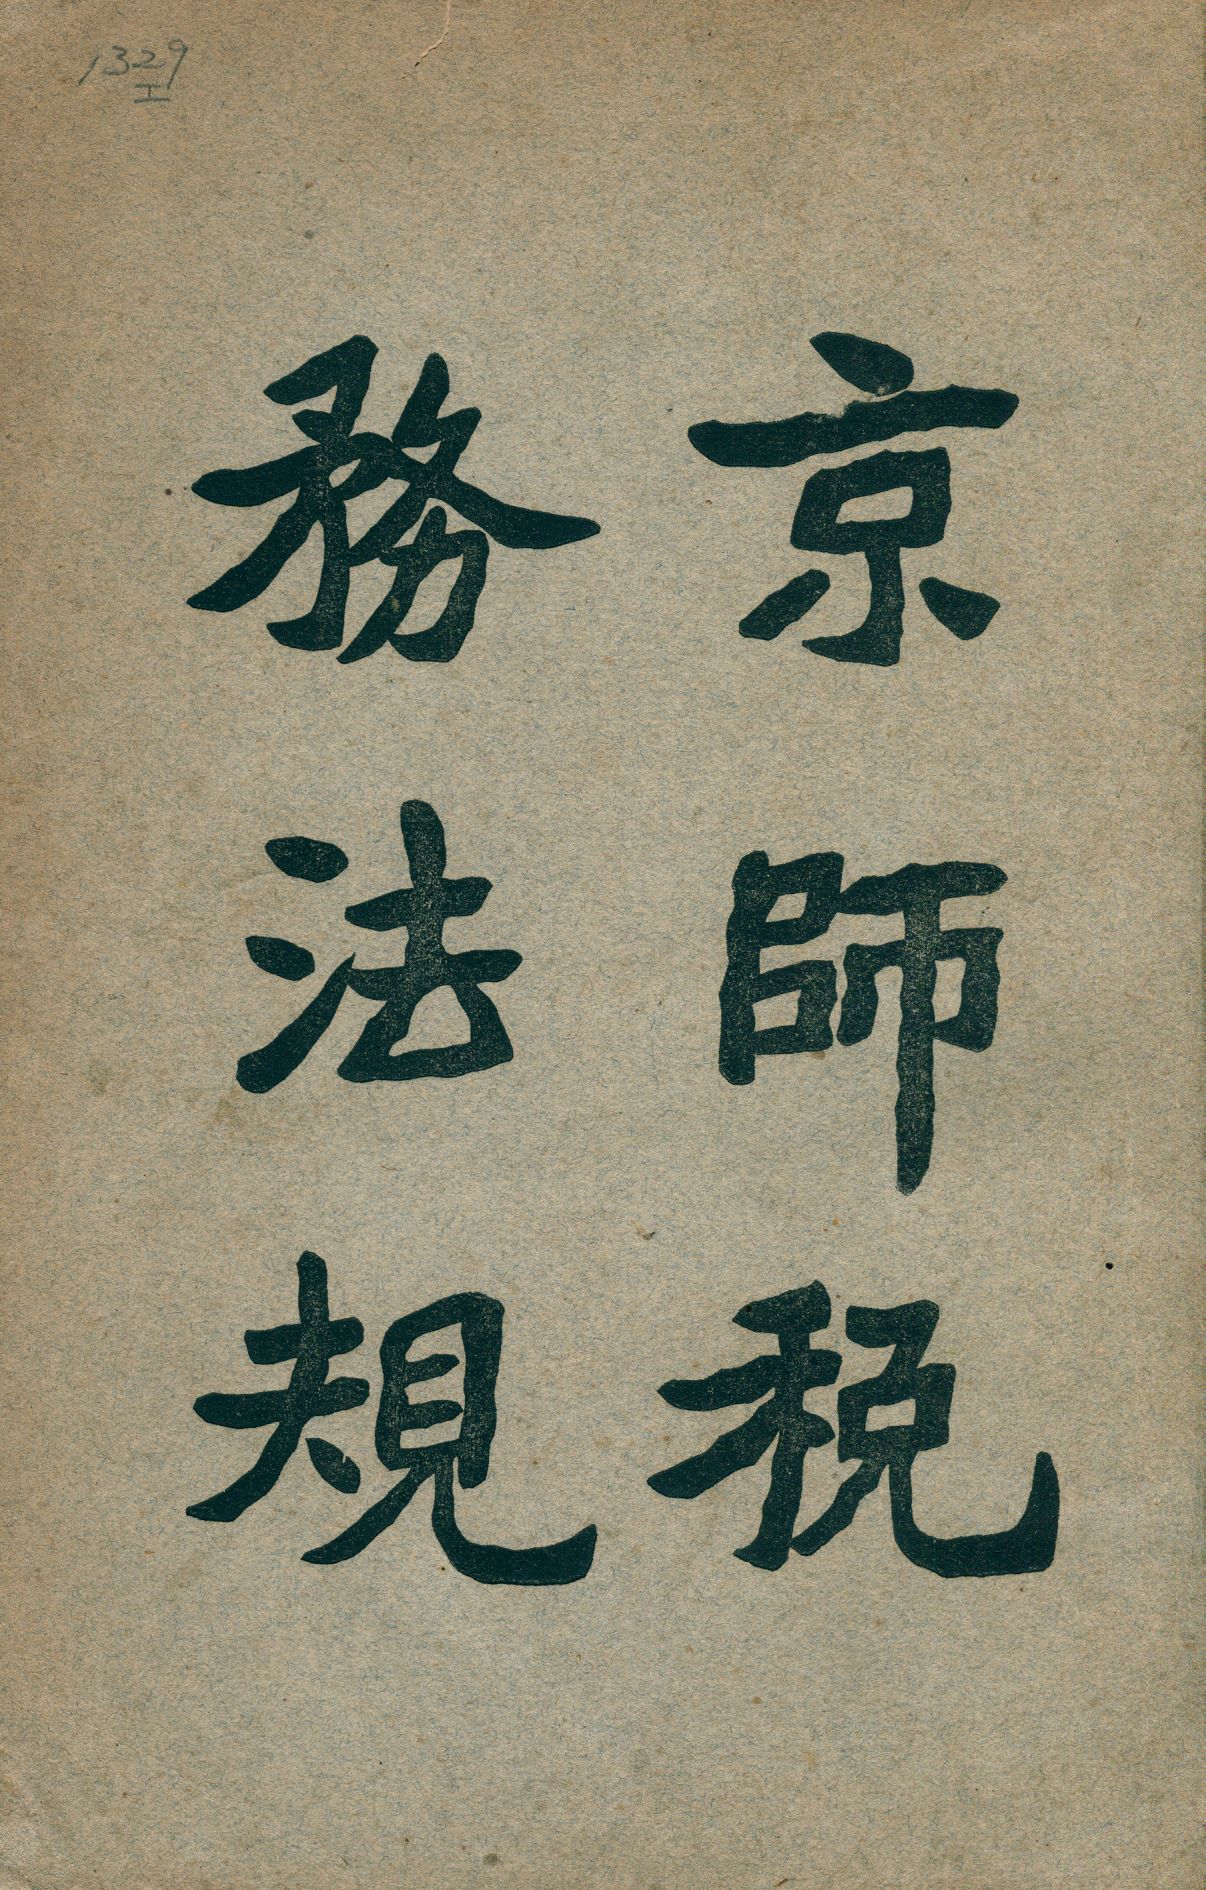 1329
I
京師税
務法規